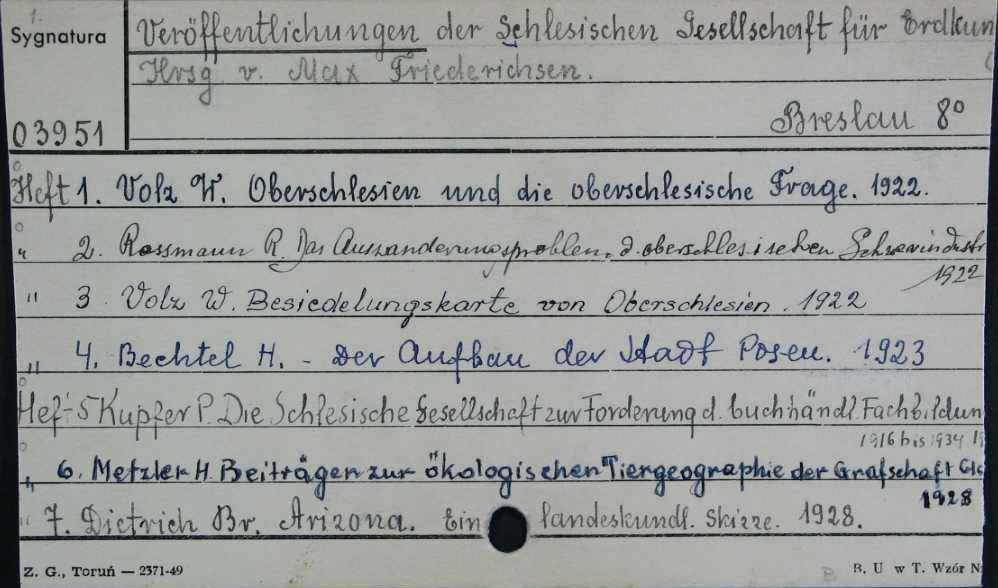 1.
Sygnatura
03951
Veröffentlichungen der Schlesischen Gesellschaft für Erdkun
Hrsg v. Max Friederichsen.
Breslau 8°
Heft 1. Volz W. Oberschlesien und die oberschlesische Frage. 1922.
" 2. Rossmann R. Das Auswanderungsproblem d. oberschlesischen
1922
" 3. Volz W. Besiedelungskarte von Oberschlesien. 1922
" 4. Bechtel H. - Der Aufbau der Stadt Posen. 1923
Heft 5 Kupfer P. Die Schlesische Gesellschaft zur Forderung d. buchhändl. Fachbildun
1916 bis 1934
" 6. Metzler H. Beiträgen zur ökologischen Tiergeographie der Grafschaft
1928
" 7. Dietrich Br. Arizona. Ein landeskundl. Skizze. 1928.
Z. G., Toruń — 2371-49
B. U w T. Wzór N